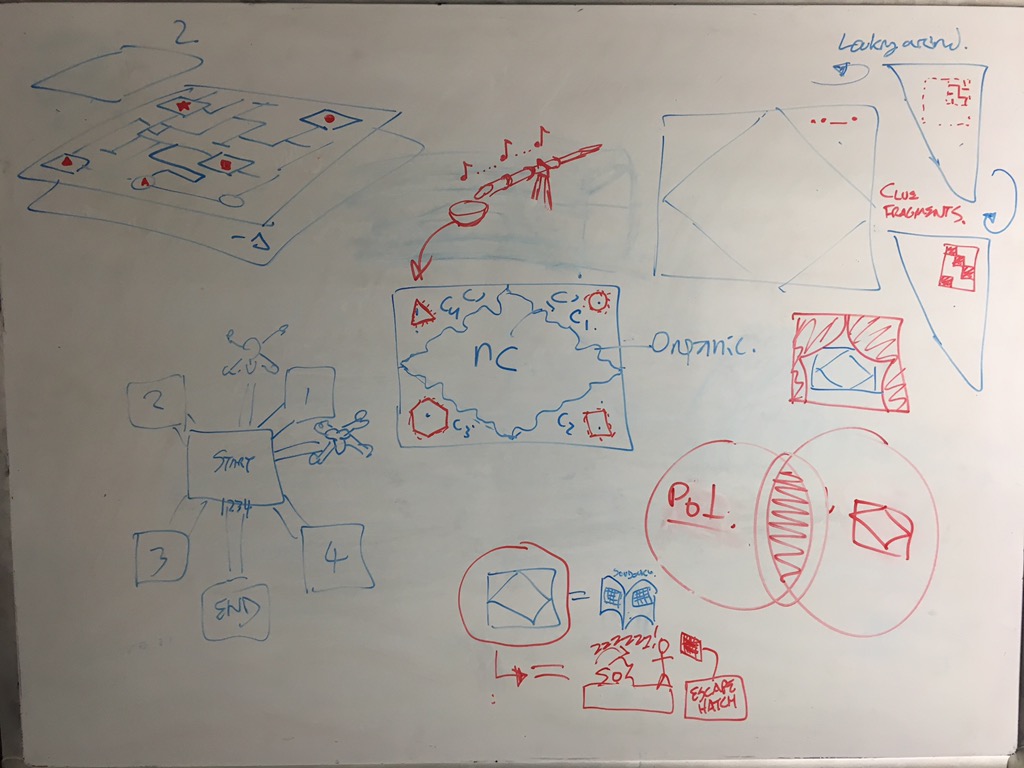 2.
Looking around.
A
CLUE
FRAGMENTS.
C4
C1
nC
Organic.
C3
C2
2
1
START
1234
3
4
END
Pol.
=
ESCAPE
HATCH